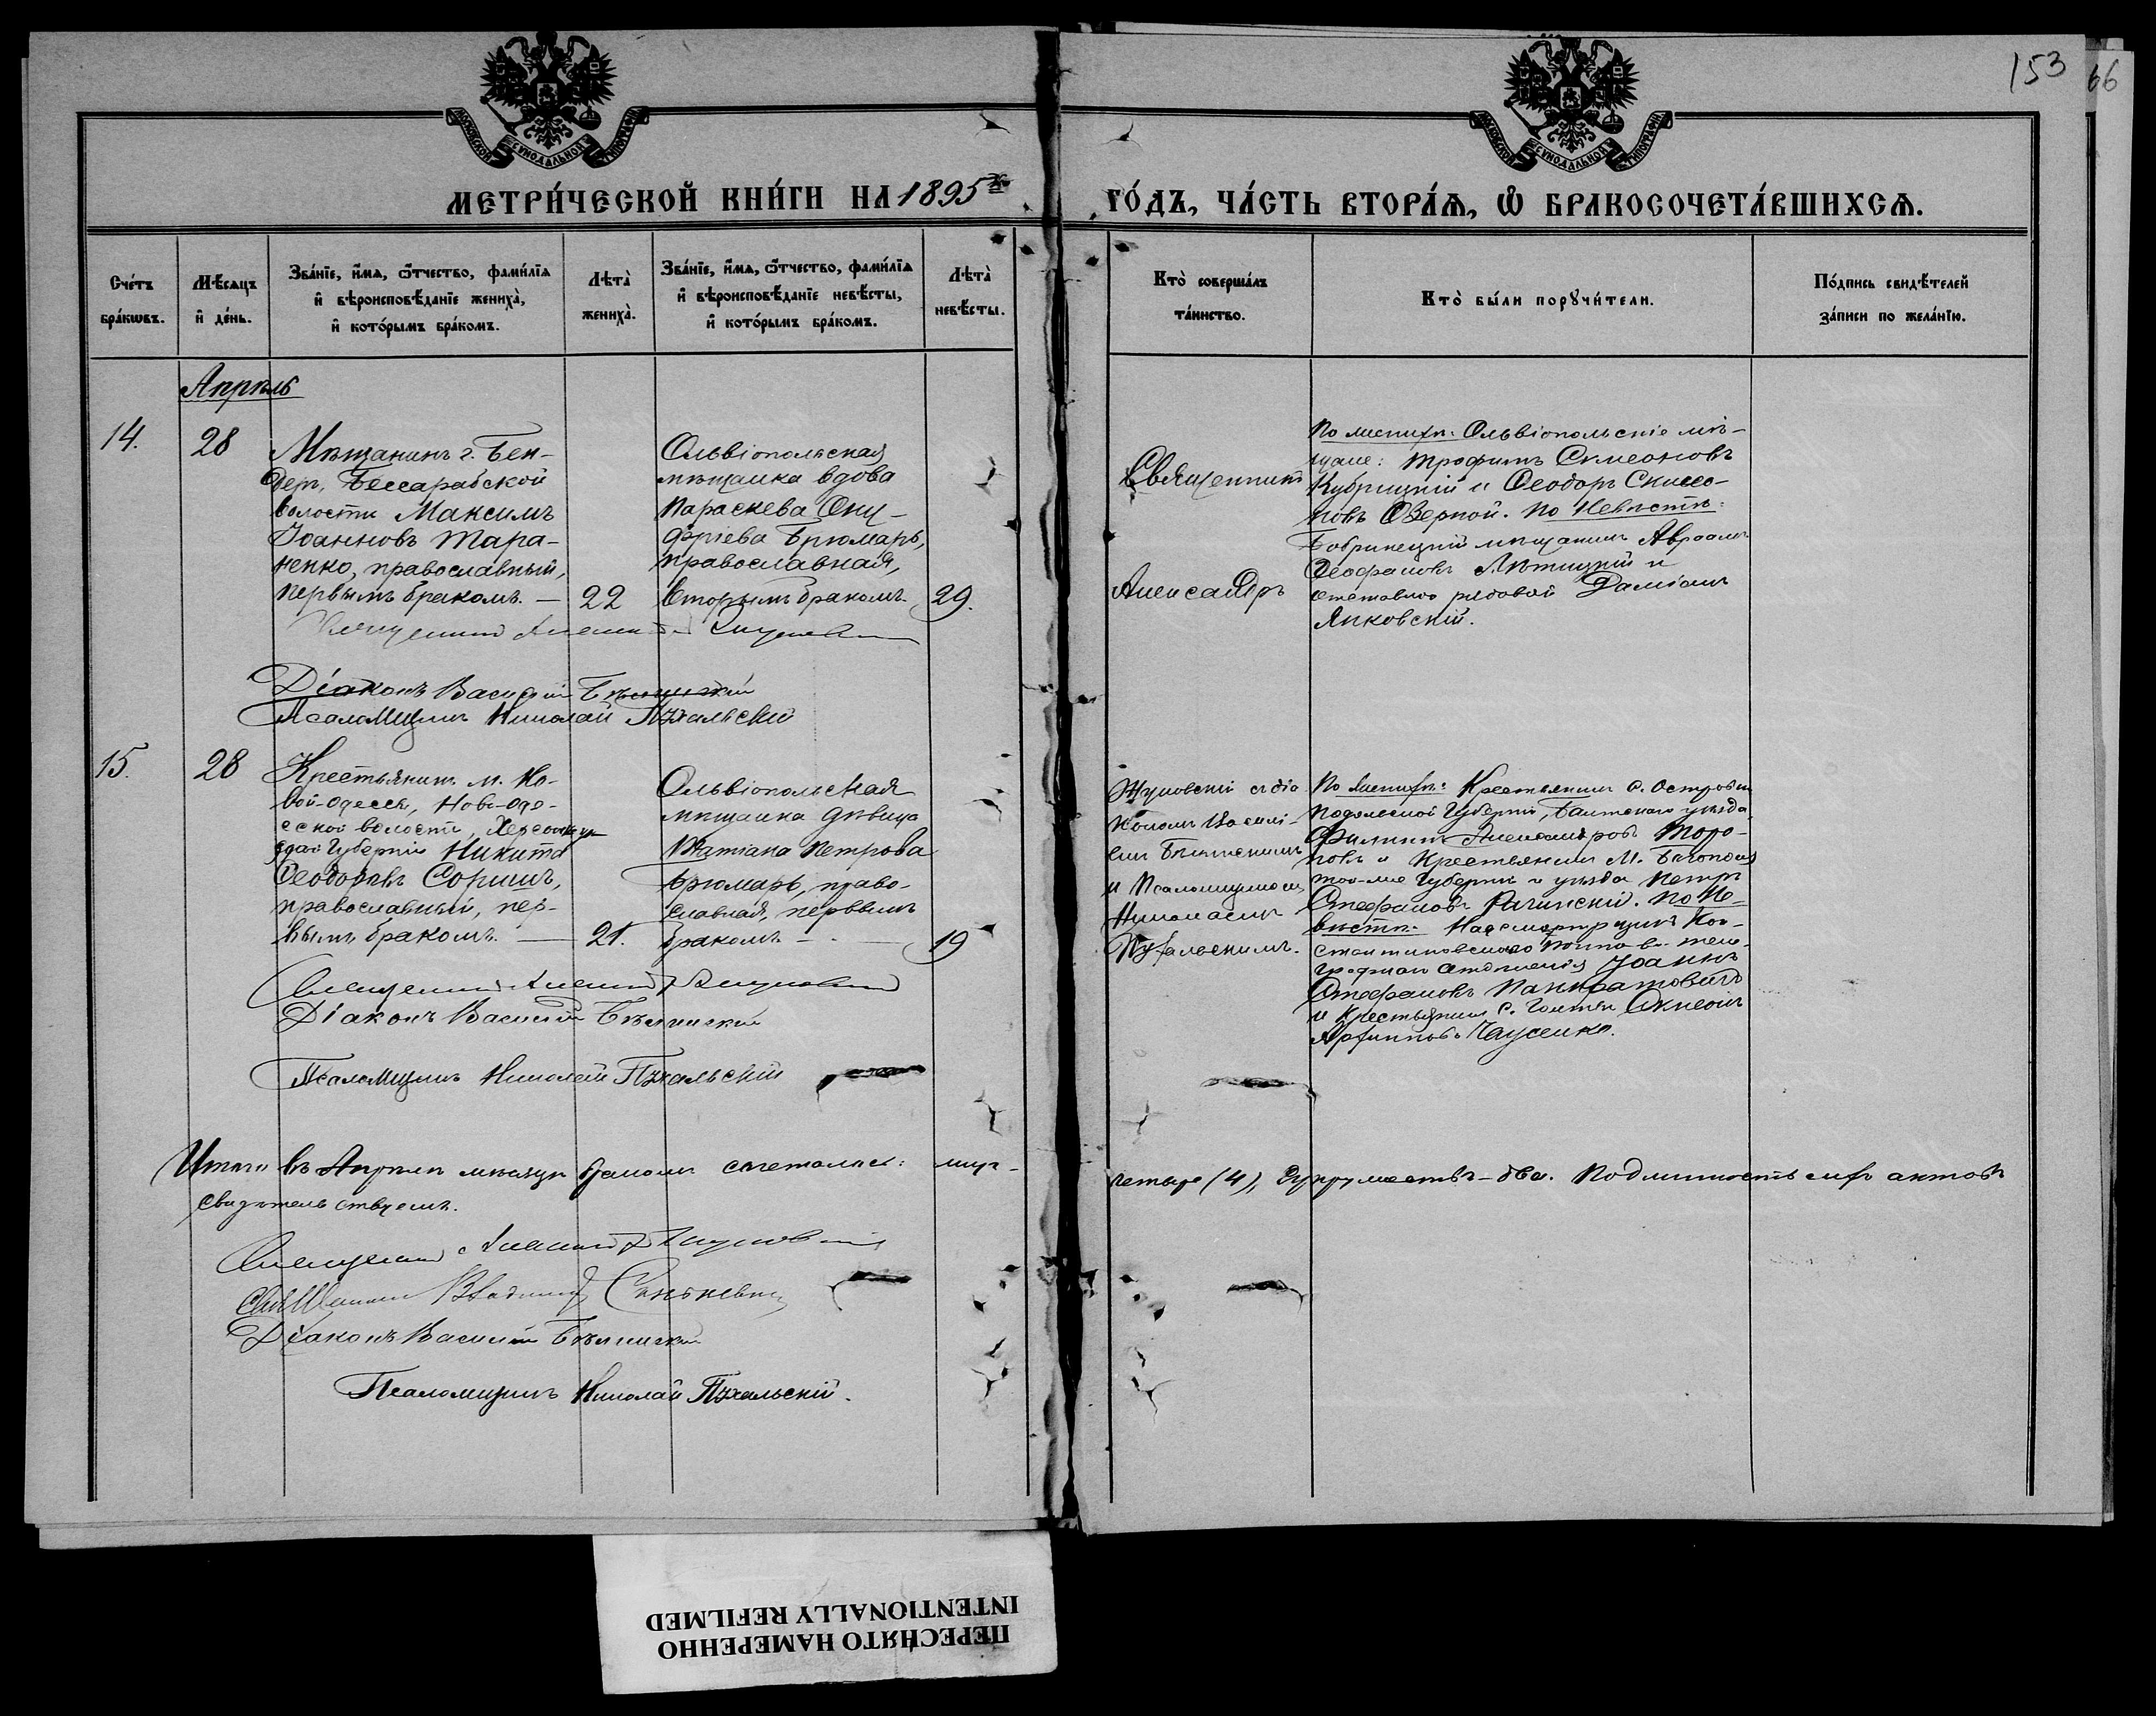 153
66
МОСКОВСКОЙ СѴНОДАЛЬНОЙ ТИПОГРАФІИ
МОСКОВСКОЙ СѴНОДАЛЬНОЙ ТИПОГРАФІИ
МЕТРИ́ЧЕСКОЙ КНИ́ГИ НА 1895й ГО́ДЪ, ЧА́СТЬ ВТОРА́Ѧ, Ѡ БРАКОСОЧЕТА́ВШИХСѦ.
Сче́тъ бра́кѡвъ.
Мѣ́сѧцъ и҆ де́нь.
Зва́нїе, и҆́мѧ, ѻ҆́тчество, фами́лїѧ
и҆ вѣроисповѣ́данїе жениха̀,
и҆ кото́рымъ бра́комъ.
Лѣта̀ жениха̀.
Зва́нїе, и҆́мѧ, ѻ҆́тчество, фами́лїѧ
и҆ вѣроисповѣ́данїе невѣ́сты,
и҆ кото́рымъ бра́комъ.
Лѣта̀ невѣ́сты.
Кто̀ соверша́лъ та́инство.
Кто̀ бы́ли порꙋчи́тели.
По́дпись свидѣ́телей за́писи по жела́нїю.
Апрѣль
14.
28
Мѣщанинъ г. Бен-
деръ, Бессарабской
волости Максимъ
Іоанновъ Тара-
ненко, православный,
первымъ бракомъ. —
22
Ольвіопольская
мѣщанка вдова
Параскева Ону-
фріева Брюмаръ,
православная,
вторымъ бракомъ.
29.
Священникъ
Александръ
По женихѣ: Ольвіопольскіе мѣ-
щане: Трофимъ Симеоновъ
Кубрицкій и Ѳеодоръ Симео-
новъ Озерной. По невѣстѣ:
Бобринецкій мѣщанинъ Авраамъ
Ѳеофановъ и
отставной рядовой Даміанъ
Янковскій.
Священникъ Александръ Жуковскій
Діаконъ Василій Бѣлинскій
Псаломщикъ Николай Пухальскій
15.
28
Крестьянинъ м. Но-
вой-Одессы, Ново-Оде-
сской волости, Херсон
ской губерніи Никита
Ѳеодоровъ Соришъ,
православный, пер-
вымъ бракомъ. —
21.
Ольвіопольская
мѣщанка дѣвица
Татіана Петрова
Брюмаръ, право-
славная, первымъ
бракомъ. —
19
Жуковскій съ діа
кономъ Василі-
емъ Бѣлинскимъ
и Псаломщикомъ
Николаемъ
Пухальскимъ.
По женихѣ: Крестьянинъ с. Островки
Подольской губерніи, Балтскаго уѣзда
Филиппъ Александровъ Торо-
новъ и Крестьянинъ м.
той-же губерніи и уѣзда Петръ
Стефановъ Рачинскій. По не-
вѣстѣ: Надсмотрщикъ Кон-
стантиновскаго почтово-теле-
графнаго отдѣленія Іоаннъ
Стефановъ Панкратовичъ
и Крестьянинъ с. Голты Симеонъ
Архиповъ Чаусенко.
Священникъ Александръ Жуковскій
Діаконъ Василій Бѣлинскій
Псаломщикъ Николай Пухальскій
Итого въ Апрѣлѣ мѣсяцѣ бракомъ сочетались: муж- четыре (4), супружествъ – два. Подлинность сихъ актовъ
свидѣтельствуемъ.
Священникъ Александръ Жуковскій
Священникъ Владиміръ Синькевичъ
Діаконъ Василій Бѣлинскій
Псаломщикъ Николай Пухальскій.
ПЕРЕСНЯТО НАМЕРЕННО
INTENTIONALLY REFILMED